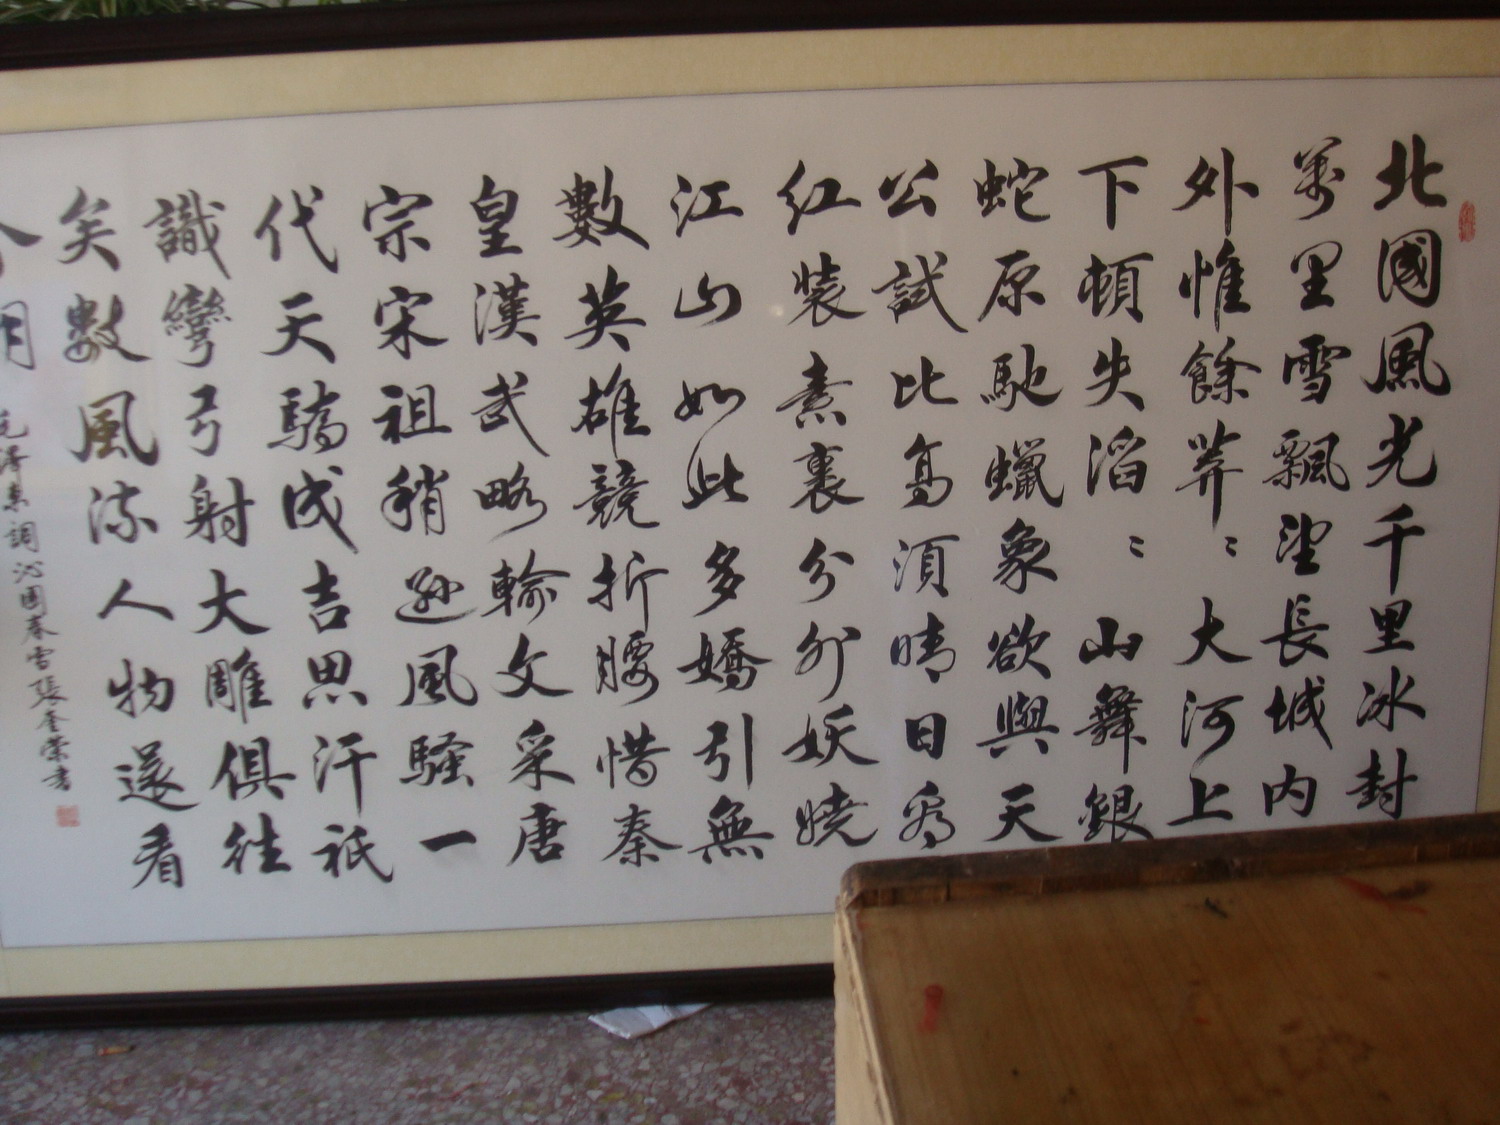 北國風光千里冰封
萬里雪飄望長城内
外惟餘莽〻大河上
下頓失滔〻山舞銀
蛇原馳蠟象欲與天
公試比高須晴日爲
红裝素裹分外妖嬈
江山如此多嬌引無
數英雄競折腰惜秦
皇漢武略輸文采唐
宗宋祖稍遜風騷一
代天驕成吉思汗衹
識彎弓射大雕俱往
矣數風流人物還看
今朝
毛澤東調沁園春雪張奎榮书